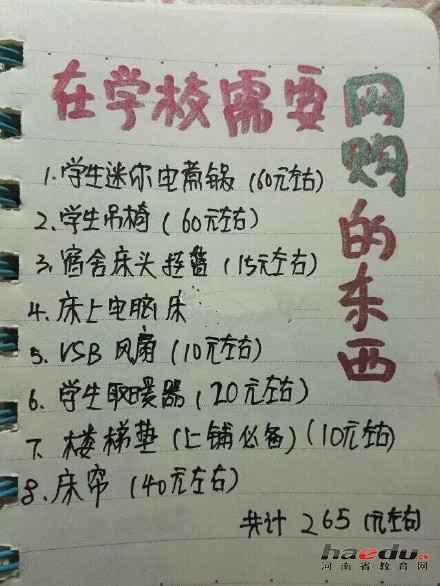 在学校需要网购的东西
1.学生迷你电煮锅(60元左右)
2.学生吊椅(60元左右)
3.宿舍床头挂篮(15元左右)
4.床上电脑床
5.VSB风扇(10元左右)
6.学生取暖器(20元左右)
7.楼梯垫(上铺必备)(10元左右)
8.床帘(40元左右)
共计265(元左右)
haedu.cn
河南省教育网